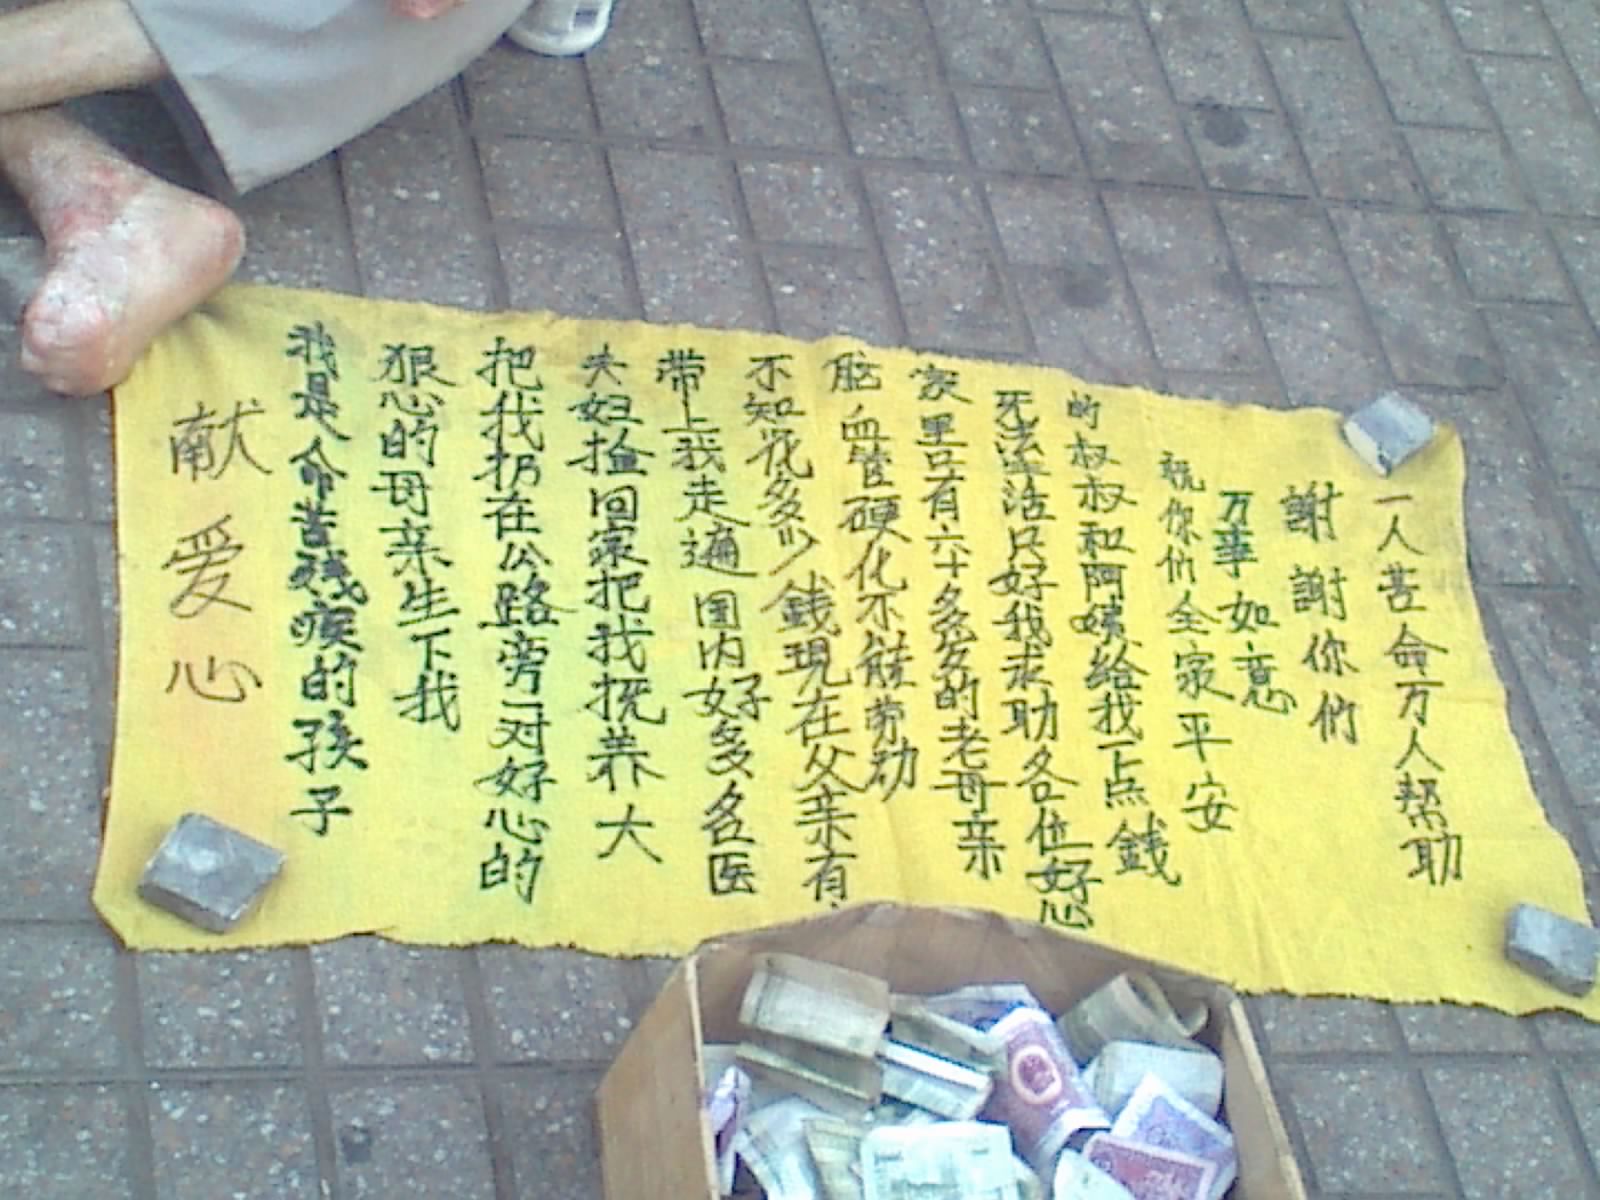 献爱心
我是命苦残疾的孩子
狠心的母亲生下我
把我扔在公路旁一对好心的
夫妇捡回家把我抚养大
带上我走遍国内好多名医
不知花多少錢現在父亲有
脑血管硬化不能劳动
家里只有六十多岁的老母亲
无法生活只好我求助各位好心
的叔叔和阿姨给我一点錢
祝你们全家平安
万事如意
謝謝你们
一人苦命万人帮助